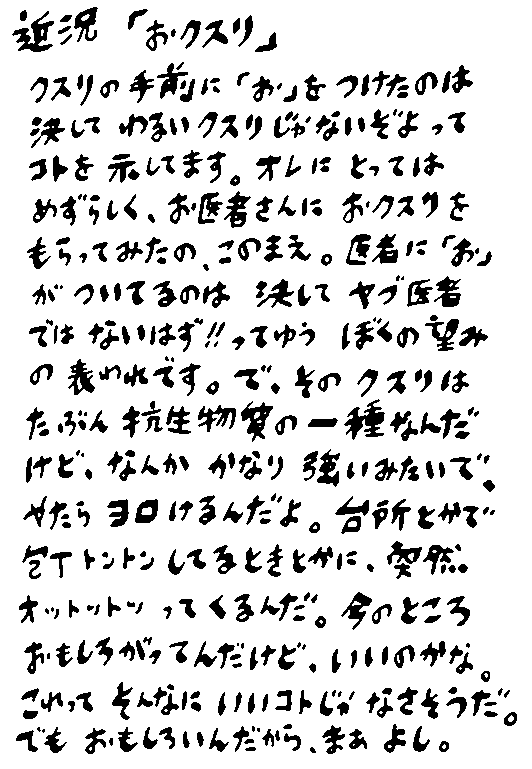 近況「おクスリ」
クスリの手前に「お」をつけたのは
決してわるいクスリじゃないぞよって
コトを示してます。オレにとっては
めずらしく、お医者さんにおクスリを
もらってみたの、このまえ。医者に「お」
がついてるのは決してヤブ医者
ではないはず!!ってゆうぼくの望み
の表われです。で、そのクスリは
たぶん抗生物質の一種なんだ
けど、なんかかなり強いみたいで、
やたらヨロけるんだよ。台所とかで
包丁トントンしてるときとかに、突然
オットットッってくるんだ。今のところ
おもしろがってんだけど、いいのかな。
これってそんなにいいコトじゃなさそうだ。
でもおもしろいんだから、まぁよし。